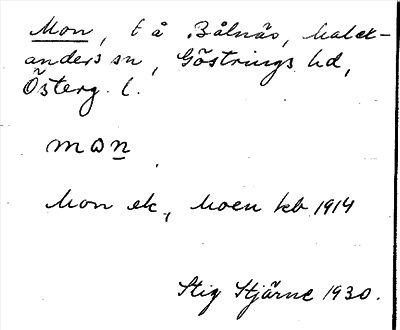 Mon, t å Bålnäs, Malex-
anders sn, Göstrings hd,
Österg. l.
mɷn
Mon ek, Moen kb 1914
Stig Stjärne 1930.